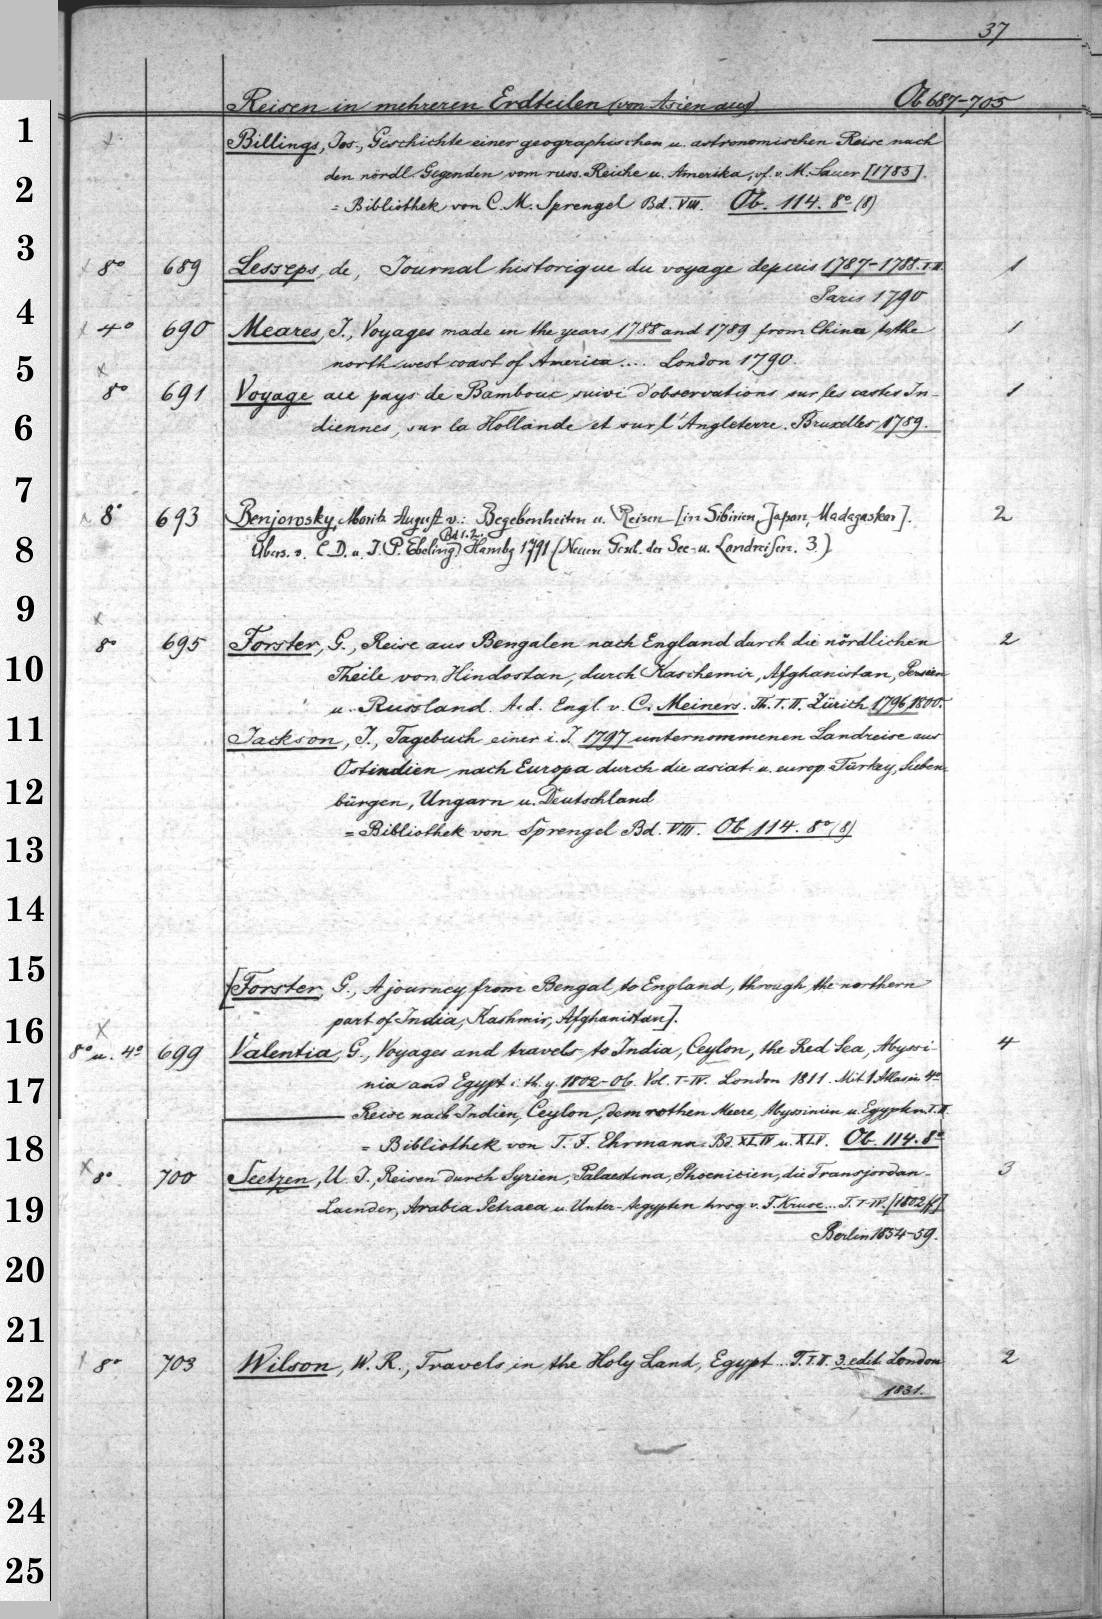 37
Reisen in mehreren Erdteilen (von Asien aus) Ob 687-705
1
x Billings, Jos., Geschichte einer geographischen u. astronomischen Reise nach
2
den nördl. Gegenden vom russ. Reiche u. Amerika, vf. v. M. Sauer [1785].
= Bibliothek von C. M. Sprengel Bd. VIII. Ob. 114. 8° (8)
3
x 8° 689 Lesseps, de, Journal historique du voyage depuis 1787-1788. T. II. 1
4
Paris 1790
x 4° 690 Meares, J., Voyages made in the years 1788 and 1789 from China to the 1
5
north west coast of America .... London 1790.
x 8° 691 Voyage au pays de Bambouc suivi d'observations sur les castes In- 1
6
diennes, sur la Hollande et sur l'Angleterre. Bruxelles 1789.
7
x 8° 693 Benjowsky, Moritz August v.: Begebenheiten u. Reisen [in Sibirien, Japan, Madagaskar]. 2
8
Übers. v. C. D. u. J. P. Ebeling Bd 1.2. Hambg 1791 (Neuere Gesch. der See- u. Landreisen. 3.)
9
x 8° 695 Forster, G., Reise aus Bengalen nach England durch die nördlichen 2
10
Theile von Hindostan, durch Kaschemir, Afghanistan, Persien
u. Russland. A. d. Engl. v. C. Meiners. Th. I. II. Zürich 1796, 1800.
11
Jackson, J., Tagebuch einer i. J. 1797 unternommenen Landreise aus
Ostindien nach Europa durch die asiat. u. europ. Türkey, Sieben-
12
bürgen, Ungarn u. Deutschland
= Bibliothek von Sprengel Bd. VIII. Ob 114. 8° (8)
13
14
15
[Forster, G., A journey from Bengal to England, through the northern
16
part of India, Kashmir, Afghanistan].
x 8° u. 4° 699 Valentia, G., Voyages and travels to India, Ceylon, the Red Sea, Abyssi- 4
17
nia and Egypt i. th. y. 1802-06. Vol. I-IV. London 1811. Mit 1 Atlas in 4°
——— Reise nach Indien, Ceylon, dem rothen Meere, Abyssinien u. Egypten. T. II
18
= Bibliothek von T. F. Ehrmann Bd. XLIV u. XLV. Ob. 114. 8°
x 8° 700 Seetzen, U. J., Reisen durch Syrien, Palaestina, Phoenicien, die Transjordan- 3
19
Laender, Arabia Petraea u. Unter-Aegypten hrsg v. F. Kruse... T. I-IV. [1802 ff]
Berlin 1854-59.
20
21
8° 703 Wilson, W. R., Travels in the Holy Land, Egypt... T. I. II. 3. edit. London 2
22
1831.
23
24
25